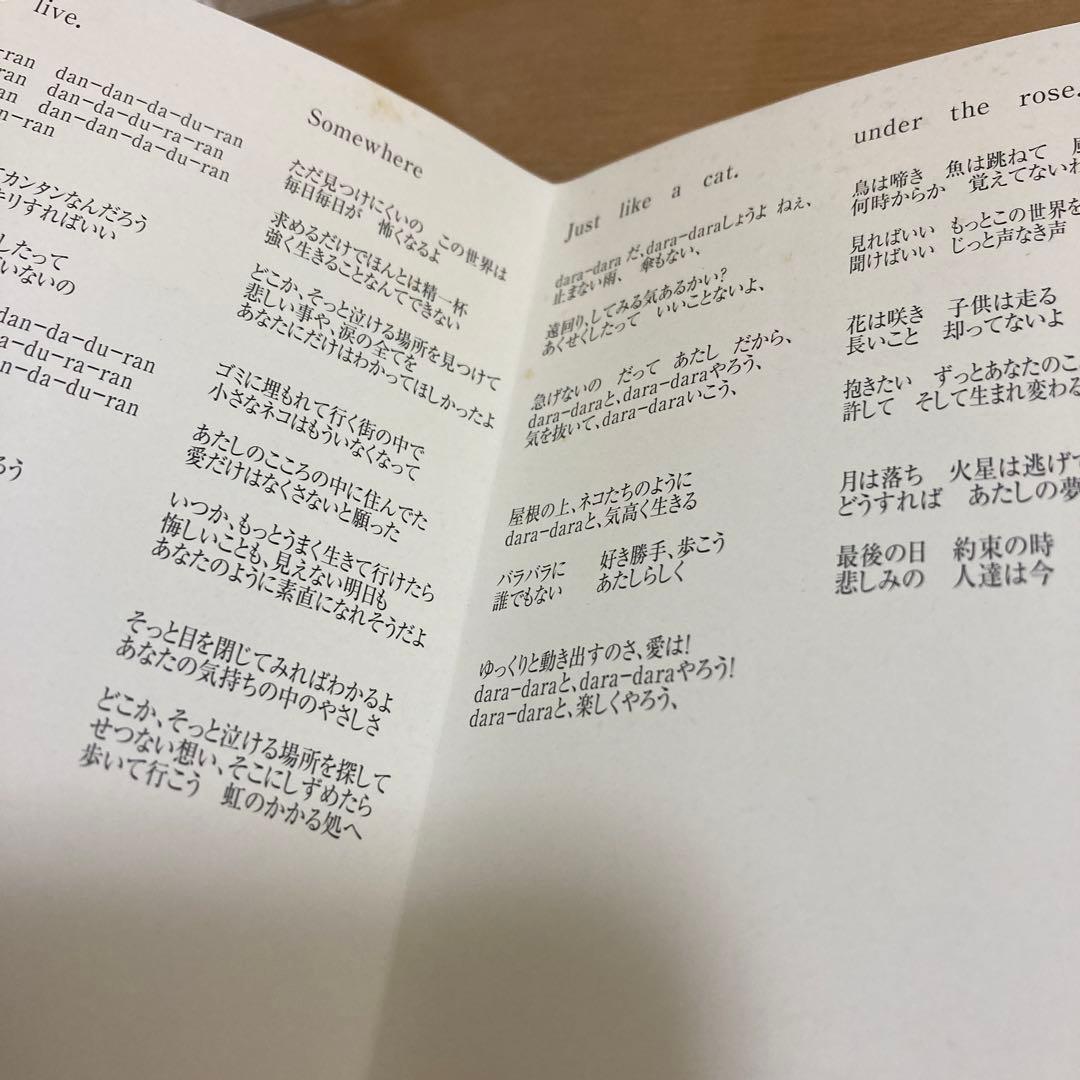 live.
-ran dan-dan-da-du-ran
ran dan-da-du-ra-ran
an dan-dan-da-du-ran
n-ran
カンタンなんだろう
キリすればいい
したって
いないの
dan-da-du-ran
a-du-ra-ran
n-da-du-ran
ろう
Somewhere
ただ見つけにくいの この世界は
毎日毎日が 怖くなるよ
求めるだけでほんとは精一杯
強く生きることなんてできない
どこか、そっと泣ける場所を見つけて
悲しい事や、涙の全てを
あなたにだけはわかってほしかったよ
ゴミに埋もれて行く街の中で
小さなネコはもういなくなって
あたしのこころの中に住んでた
愛だけはなくさないと願った
いつか、もっとうまく生きて行けたら
悔しいことも、見えない明日も
あなたのように素直になれそうだよ
そっと目を閉じてみればわかるよ
あなたの気持ちの中のやさしさ
どこか、そっと泣ける場所を探して
せつない想い、そこにしずめたら
歩いて行こう 虹のかかる処へ
Just like a cat.
dara-dara だ、dara-daraしょうよ ねぇ、
止まない雨、 傘もない、
遠回り、してみる気あるかい?
あくせくしたって いいことないよ、
急げないの だって あたし だから、
dara-daraと、dara-daraやろう、
気を抜いて、dara-daraいこう、
屋根の上、ネコたちのように
dara-daraと、気高く生きる
バラバラに 好き勝手、歩こう
誰でもない あたしらしく
ゆっくりと動き出すのさ、愛は!
dara-daraと、dara-daraやろう!
dara-daraと、楽しくやろう、
under the rose.
鳥は啼き 魚は跳ねて 風
何時からか 覚えてないわ
見ればいい もっとこの世界を
聞けばいい じっと声なき声
花は咲き 子供は走る
長いこと 却ってないよ
抱きたい ずっとあなたのこ
許して そして生まれ変わる
月は落ち 火星は逃げて
どうすれば あたしの夢
最後の日 約束の時
悲しみの 人達は今